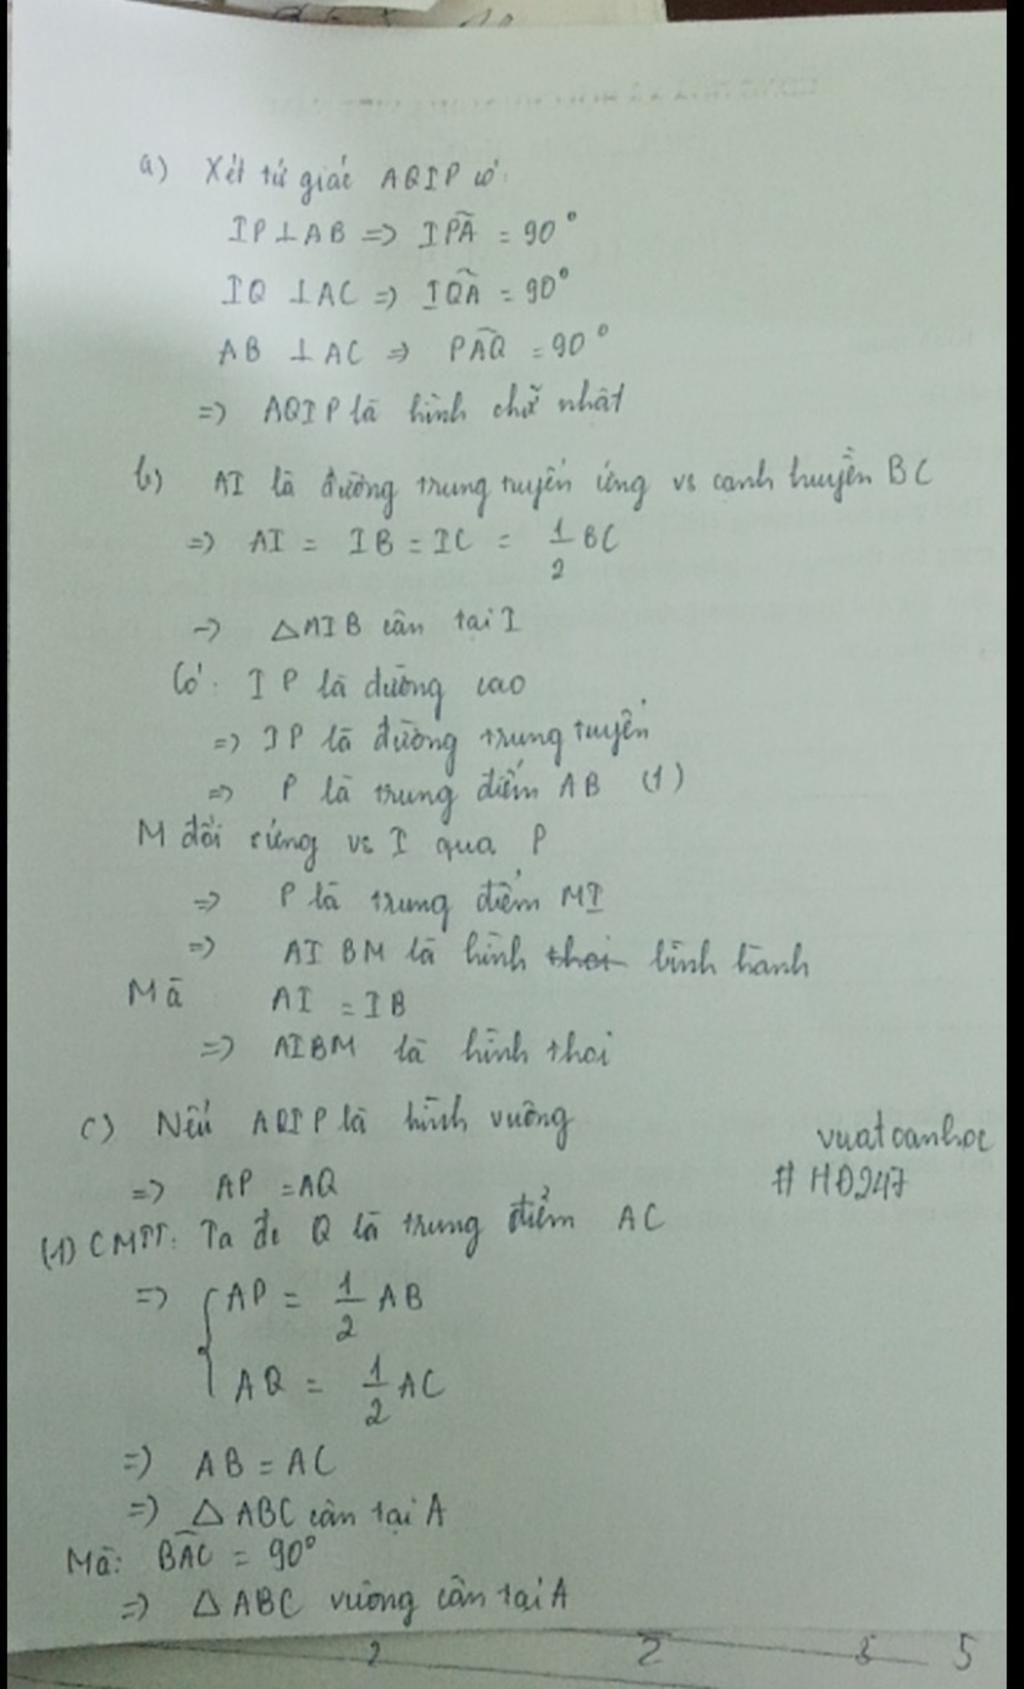 a) Xét tứ giác AQIP có:
IP ⊥ AB => IPA = 90°
IQ ⊥ AC => IQA = 90°
AB ⊥ AC => PAQ = 90°
=> AQIP là hình chữ nhật
b) AI là đường trung tuyến ứng vs cạnh huyền BC
=> AI = IB = IC = 1/2 BC
=> △AIB cân tại I
Có: IP là đường cao
=> IP là đường trung tuyến
=> P là trung điểm AB (1)
M đối xứng vs I qua P
=> P là trung điểm MI
=> AIBM là hình thoi bình hành
Mà AI = IB
=> AIBM là hình thoi
c) Nếu AQIP là hình vuông
vuatoanhoc
=> AP = AQ
#HĐ247
(1) CMTT: Ta đc Q là trung điểm AC
=> { AP = 1/2 AB
AQ = 1/2 AC
=> AB = AC
=> △ABC cân tại A
Mà: BAC = 90°
=> △ABC vuông cân tại A
2 2 5